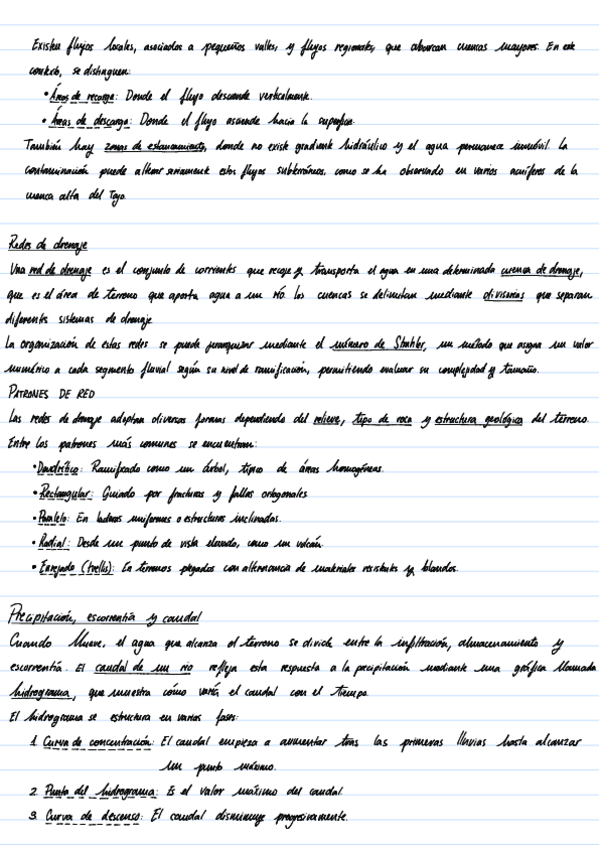 Existen flujos locales, asociados a pequeños valles, y flujos regionales, que abarcan cuencas mayores. En este
contexto, se distinguen:
• Áreas de recarga: Donde el flujo desciende verticalmente.
• Áreas de descarga: Donde el flujo asciende hacia la superficie.
También hay zonas de estancamiento, donde no existe gradiente hidráulico y el agua permanece inmóvil. La
contaminación puede alterar seriamente estos flujos subterráneos, como se ha observado en varios acuíferos de la
cuenca alta del Tajo.
Redes de drenaje
Una red de drenaje es el conjunto de corrientes que recoje y transporta el agua en una determinada cuenca de drenaje,
que es el área de terreno que aporta agua a un río. Las cuencas se delimitan mediante divisorias que separan
diferentes sistemas de drenaje.
La organización de estas redes se puede jerarquizar mediante el número de Strahler, un método que asigna un valor
numérico a cada segmento fluvial según su nivel de ramificación, permitiendo evaluar su complejidad y tamaño.
PATRONES DE RED
Las redes de drenaje adoptan diversas formas dependiendo del relieve, tipo de roca y estructura geológica del terreno.
Entre los patrones más comunes se encuentran:
• Dendrítico: Ramificado como un árbol, típico de áreas homogéneas.
• Rectangular: Guiado por fracturas y fallas ortogonales
• Paralelo: En laderas uniformes o estructuras inclinadas.
• Radial: Desde un punto de vista elevado, como un volcán.
• Enrejado (trellis): En terrenos plegados con alternancia de materiales resistentes y blandos.
Precipitación, escorrentía y caudal
Cuando llueve, el agua que alcanza el terreno se divide entre la infiltración, almacenamiento y
escorrentía. El caudal de un río refleja esta respuesta a la precipitación mediante una gráfica llamada
hidrograma, que muestra cómo varía el caudal con el tiempo.
El hidrograma se estructura en varias fases:
1. Curva de concentración: El caudal empieza a aumentar tras las primeras lluvias hasta alcanzar
un punto máximo.
2. Punta del hidrograma: Es el valor máximo del caudal.
3. Curva de descenso: El caudal disminuye progresivamente.